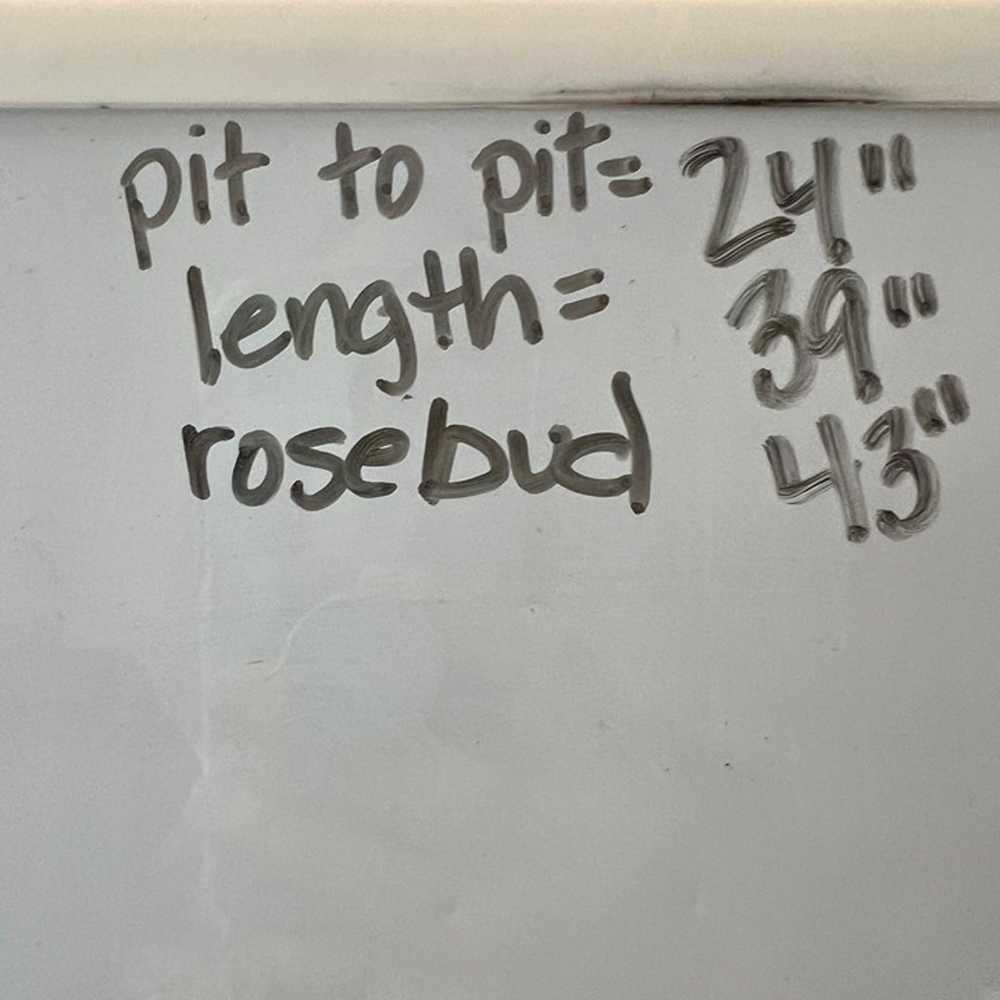 pit to pit= 24"
length= 39"
rosebud 43"